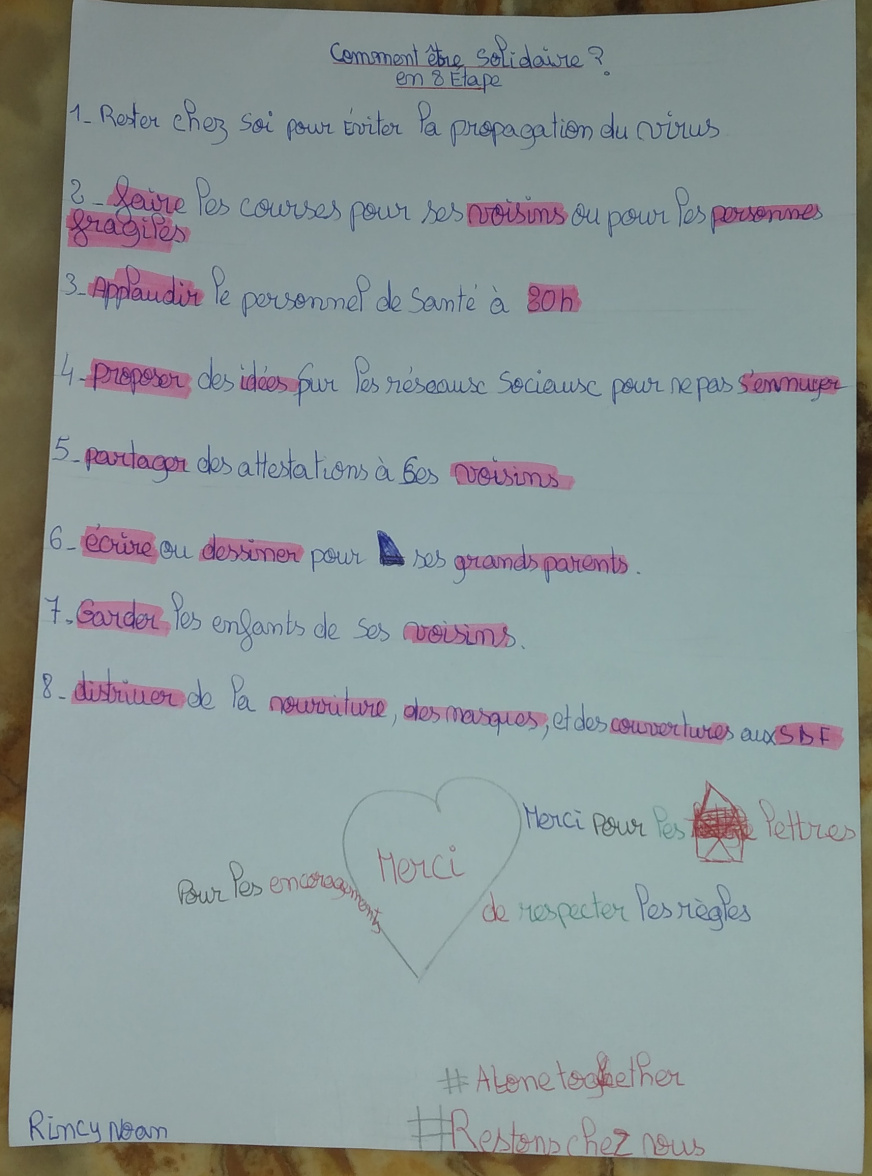 Comment être solidaire ?
en 8 Étape
1- Rester chez soi pour éviter la propagation du virus
2- faire les courses pour ses voisins ou pour les personnes
fragiles
3- Applaudir le personnel de santé à 20h
4- proposer des idées sur les réseausc sociausc pour ne pas s'ennuyer
5- partager des attestations à ses voisins
6- écrire ou dessiner pour ses grands parents.
7- Garder les enfants de ses voisins.
8- distriuer de la nourriture, des masques, et des couvertures aux SDF
Merci pour les lettres
Merci
Pour les encoragements
de respecter les règles
#Alonetogether
#Restons chez nous
Rincy Noam